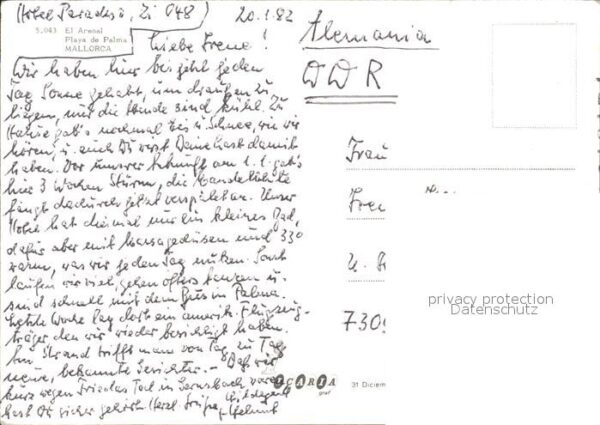 Hotel Paradiso, Zi 048
20.1.82
5.043 El Arenal
Playa de Palma
MALLORCA
Liebe Irene!
Wir haben hier bis jetzt jeden
Tag Sonne gehabt, um draußen zu
liegen, nur die Winde sind kühl. Zu
Hause gab's nochmal Eis u. Schnee, wie wir
hören, u. auch Du wirst Deine Last damit
haben. Vor unserer Ankunft am 1.1. gab's
hier 3 Wochen Sturm, die Mandelblüte
fängt dadurch jetzt verspätet an. Unser
Hotel hat diesmal nur ein kleines Bad,
dafür aber mit Massagedüsen und 33°
warm, was wir jeden Tag nutzen. Sonst
laufen wir viel, gehen öfters tanzen u.
sind schnell mit dem Bus in Palma.
Letzte Woche lag dort ein amerik. Flugzeug-
träger den wir wieder besichtigt haben.
Am Strand trifft man von Tag zu Tag
neue, bekannte Gesichter. - Daß wir
kurz wegen Friedas Tod in waren
hast Du sicher gehört. Herzl. Grüße,
Hildegard
Helmut
Alemania
DDR
Frau
730
privacy protection
Datenschutz
ICARIA
graf
31 Diciem